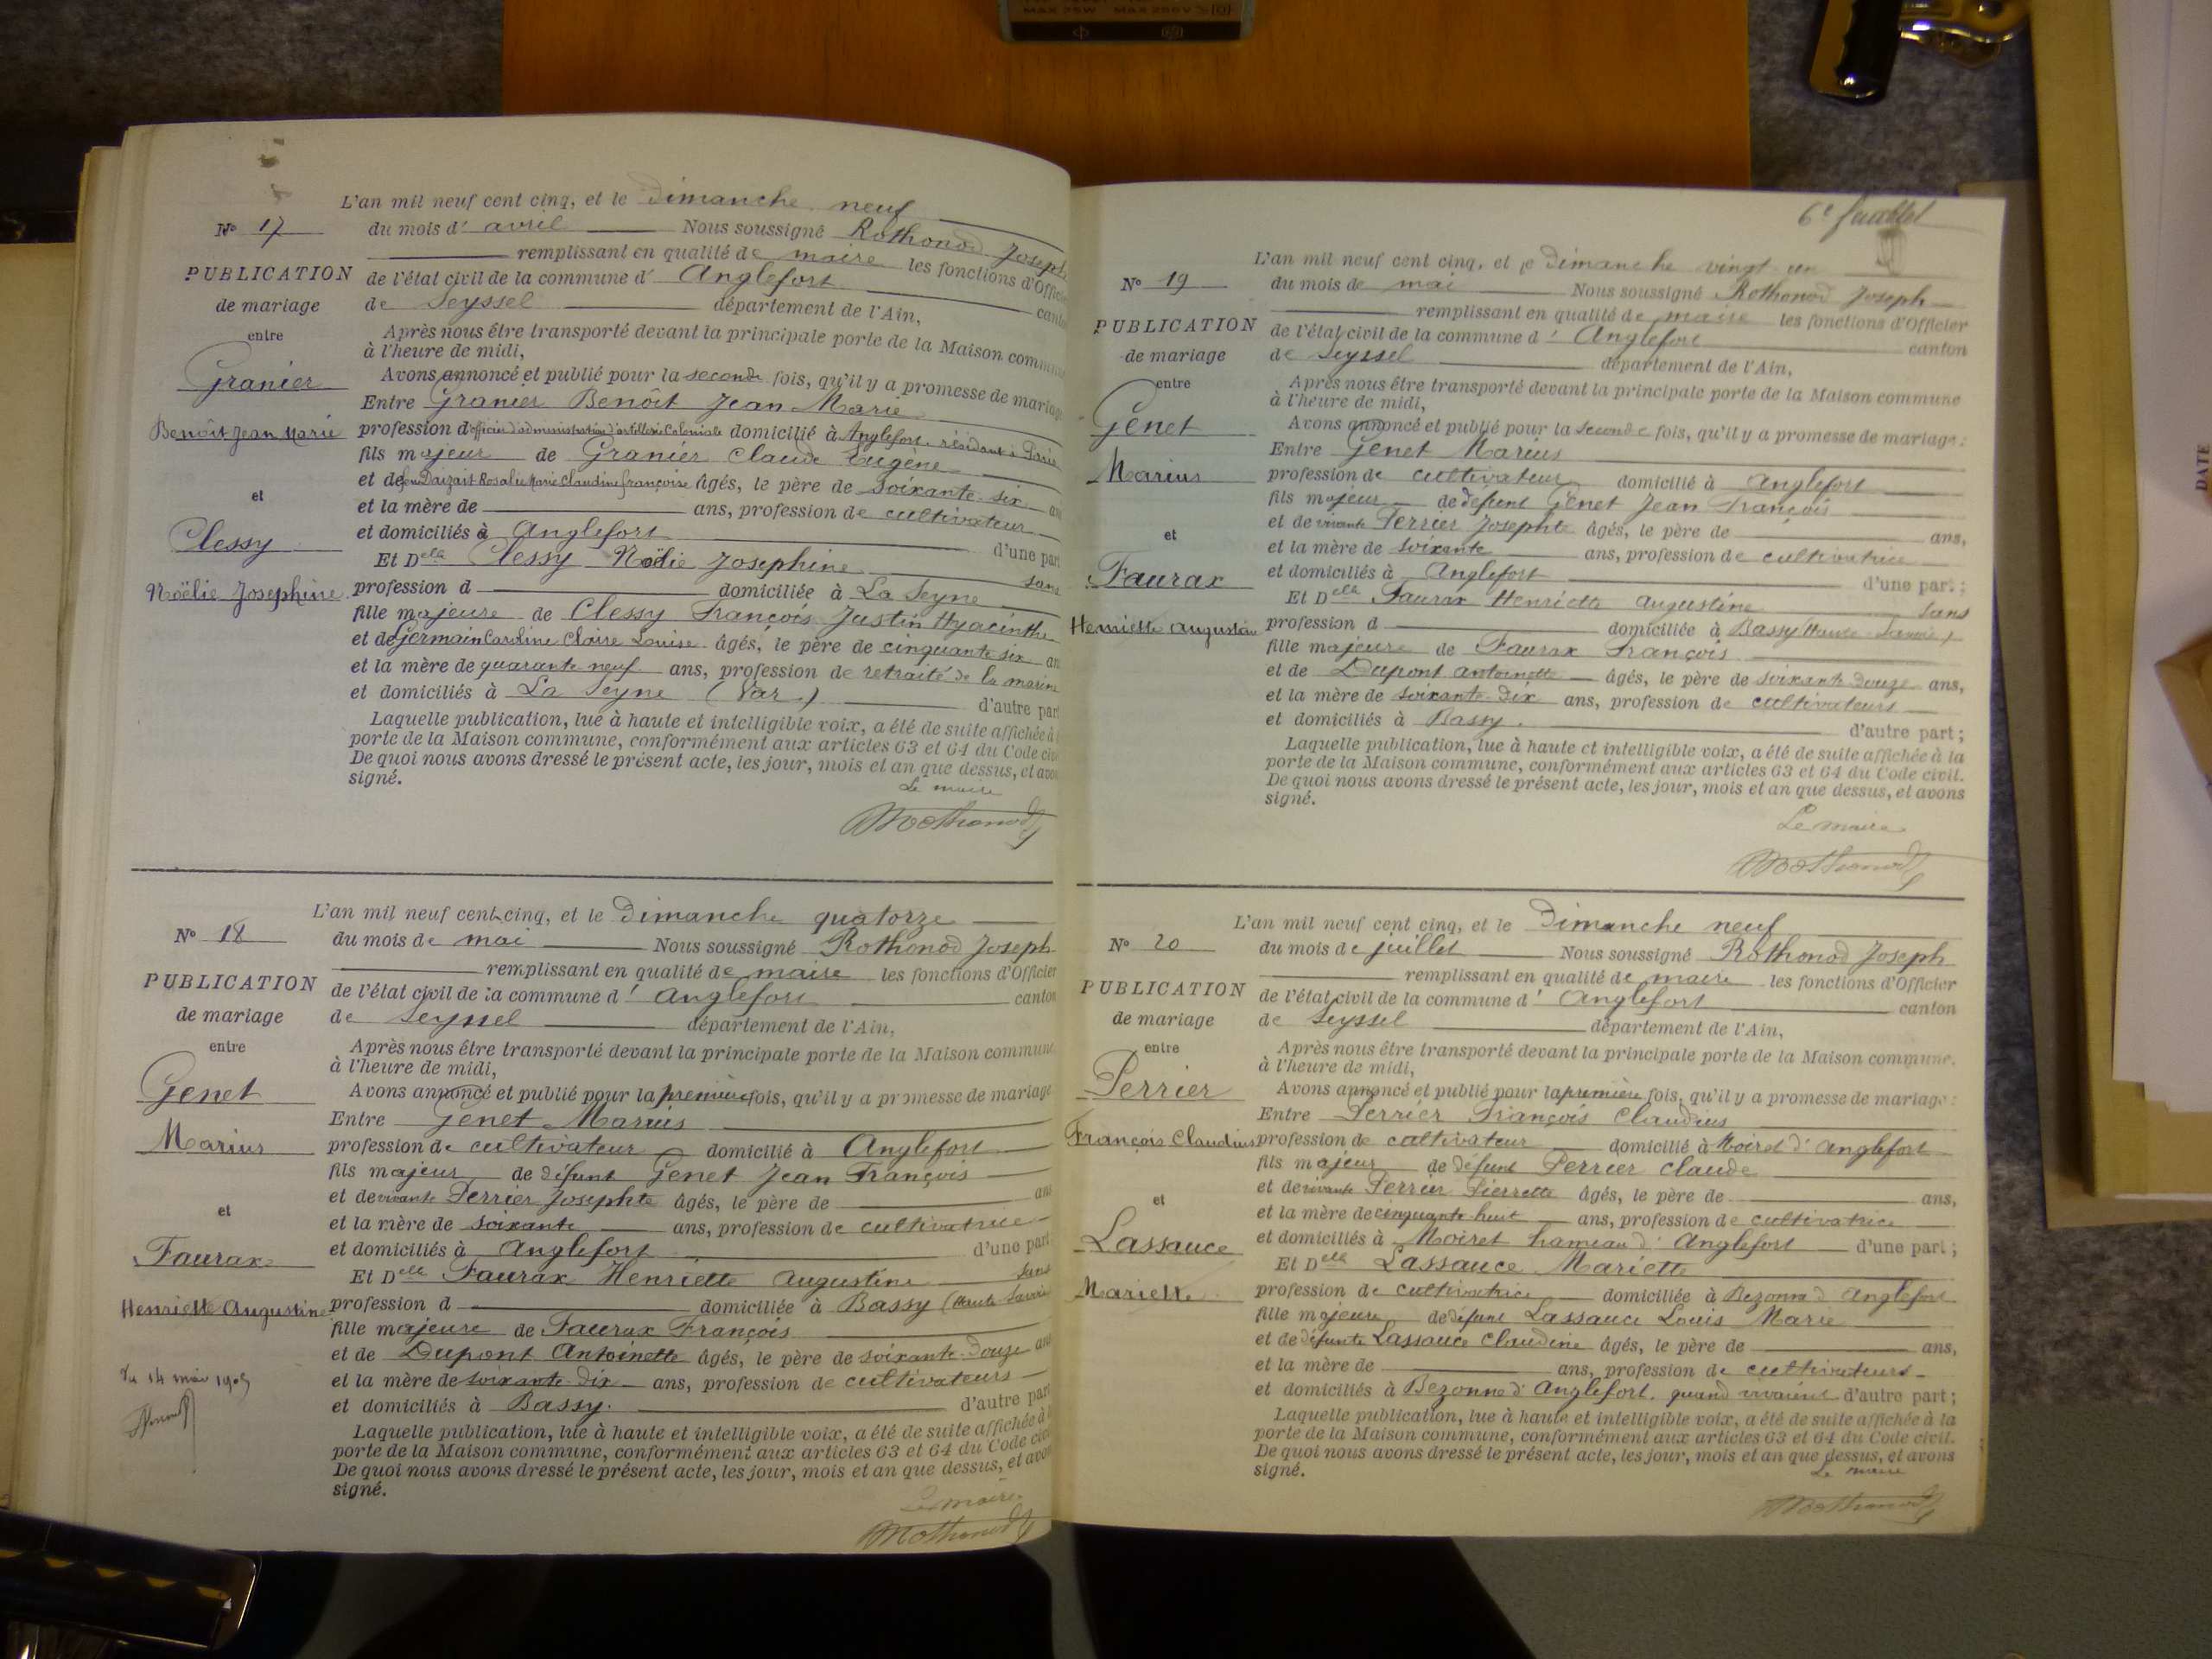 MAX 75W MAX 250V
L'an mil neuf cent cinq, et le Dimanche neuf
N° 17
du mois d' avril Nous soussigné Rothonod Joseph
remplissant en qualité de maire les fonctions d'Officier
PUBLICATION
de l'état civil de la commune d' Anglefort canton
de mariage
de Seyssel département de l'Ain,
entre
Après nous être transporté devant la principale porte de la Maison commune
à l'heure de midi,
Granier
Avons annoncé et publié pour la seconde fois, qu'il y a promesse de mariage
Entre Granier Benoît Jean Marie
Benoît Jean Marie
profession d'officier d'administration d'artillerie coloniale domicilié à Anglefort résidant à Paris
fils majeur de Granier Claude Eugène
et de feu Daizait Rosalie Marie Claudine Françoise âgés, le père de soixante-six ans
et
et la mère de ans, profession de cultivateur
et domiciliés à Anglefort d'une part
Clessy
Et Delle Clessy Noëlie Josephine sans
Noëlie Josephine
profession d domiciliée à La Seyne
fille majeure de Clessy François Justin Hyacinthe
et de Germain Caroline Claire Louise âgés, le père de cinquante six an
et la mère de quarante neuf ans, profession de retraité de la marine
et domiciliés à La Seyne (Var) d'autre part
Laquelle publication, lue à haute et intelligible voix, a été de suite affichée à
porte de la Maison commune, conformément aux articles 63 et 64 du Code civ
De quoi nous avons dressé le présent acte, les jour, mois et an que dessus, et avo
signé.
Le maire
Rothonod
L'an mil neuf cent cinq, et le Dimanche quatorze
N° 18
du mois de mai Nous soussigné Rothonod Joseph
remplissant en qualité de maire les fonctions d'Officier
PUBLICATION
de l'état civil de la commune d' Anglefort canton
de mariage
de Seyssel département de l'Ain,
entre
Après nous être transporté devant la principale porte de la Maison commune
à l'heure de midi,
Genet
Avons annoncé et publié pour la première fois, qu'il y a promesse de mariage
Entre Genet Marius
Marius
profession de cultivateur domicilié à Anglefort
fils majeur de défunt Genet Jean François
et de vivante Perrier Josephte âgés, le père de ans
et
et la mère de soixante ans, profession de cultivatrice
et domiciliés à Anglefort d'une part
Faurax
Et Delle Faurax Henriette Augustine sans
Henriette Augustine
profession d domiciliée à Bassy (Haute Savoie
fille majeure de Faurax François
et de Dupont Antoinette âgés, le père de soixante-douze ans
Du 14 mai 1905
et la mère de soixante-dix ans, profession de cultivateurs
et domiciliés à Bassy. d'autre part
Laquelle publication, lue à haute et intelligible voix, a été de suite affichée à
porte de la Maison commune, conformément aux articles 63 et 64 du Code civi
De quoi nous avons dressé le présent acte, les jour, mois et an que dessus, et avon
signé.
Le maire
Rothonod
6e feuillet
L'an mil neuf cent cinq, et le Dimanche vingt un
N° 19
du mois de mai Nous soussigné Rothonod Joseph
remplissant en qualité de maire les fonctions d'Officier
PUBLICATION
de l'état civil de la commune d' Anglefort canton
de mariage
de Seyssel département de l'Ain,
entre
Après nous être transporté devant la principale porte de la Maison commune
à l'heure de midi,
Genet
Avons annoncé et publié pour la seconde fois, qu'il y a promesse de mariage:
Entre Genet Marius
Marius
profession de cultivateur domicilié à Anglefort
fils majeur de défunt Genet Jean François
et de vivante Perrier Josephte âgés, le père de ans,
et
et la mère de soixante ans, profession de cultivatrice
et domiciliés à Anglefort d'une part;
Faurax
Et Delle Faurax Henriette Augustine sans
Henriette Augustine
profession d domiciliée à Bassy (Haute-Savoie)
fille majeure de Faurax François
et de Dupont Antoinette âgés, le père de soixante douze ans,
et la mère de soixante-dix ans, profession de cultivateurs
et domiciliés à Bassy. d'autre part;
Laquelle publication, lue à haute et intelligible voix, a été de suite affichée à la
porte de la Maison commune, conformément aux articles 63 et 64 du Code civil.
De quoi nous avons dressé le présent acte, les jour, mois et an que dessus, et avons
signé.
Le maire
Rothonod
L'an mil neuf cent cinq, et le Dimanche neuf
N° 20
du mois de juillet Nous soussigné Rothonod Joseph
remplissant en qualité de maire les fonctions d'Officier
PUBLICATION
de l'état civil de la commune d' Anglefort canton
de mariage
de Seyssel département de l'Ain,
entre
Après nous être transporté devant la principale porte de la Maison commune.
à l'heure de midi,
Perrier
Avons annoncé et publié pour la première fois, qu'il y a promesse de mariage:
Entre Perrier François Claudius
François Claudius
profession de cultivateur domicilié à Moiret d'Anglefort
fils majeur de défunt Perrier Claude
et de vivante Perrier Pierrette âgés, le père de ans,
et
et la mère de cinquante-huit ans, profession de cultivatrice
et domiciliés à Moiret hameau d'Anglefort d'une part;
Lassauce
Et Delle Lassauce Mariette
Mariette
profession de cultivatrice domiciliée à Bezonne d'Anglefort
fille majeure de défunt Lassauce Louis Marie
et de défunte Lassauce Claudine âgés, le père de ans,
et la mère de ans, profession de cultivateurs
et domiciliés à Bezonne d'Anglefort. quand vivaient d'autre part;
Laquelle publication, lue à haute et intelligible voix, a été de suite affichée à la
porte de la Maison commune, conformément aux articles 63 et 64 du Code civil.
De quoi nous avons dressé le présent acte, les jour, mois et an que dessus, et avons
signé.
Le maire
Rothonod
DATE